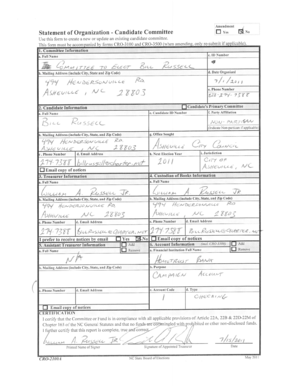 Statement of Organization - Candidate Committee
Amendment
Yes No
Use this form to create a new or update an existing candidate committee.
This form must be accompanied by forms CRO-3100 and CRO-3500 (when amending, only re-submit if applicable).
1. Committee Information
a. Full Name
c. ID Number
Committee to Elect Bill Russell
b. Mailing Address (include City, State and Zip Code)
d. Date Organized
494 Hendersonville Rd
Asheville, NC 28803
e. Phone Number
2. Candidate Information
Candidate's Primary Committee
a. Full Name
c. Candidate ID Number
f. Party Affiliation
Bill Russell
Non-Partisan
b. Mailing Address (include City, State and Zip Code)
g. Office Sought
494 Hendersonville Rd
Asheville NC 28803
Asheville City Council
c. Phone Number
d. Email Address
h. Next Election Year
i. Jurisdiction
2011
City of
Asheville, NC
Email copy of notices
3. Treasurer Information
4. Custodian of Books Information
a. Full Name
a. Full Name
William A. Russell Jr
William A. Russell Jr
b. Mailing Address (include City, State and Zip Code)
b. Mailing Address (include City, State and Zip Code)
494 Hendersonville Rd
494 Hendersonville Rd
Asheville NC 28803
Asheville NC 28803
c. Phone Number
d. Email Address
c. Phone Number
d. Email Address
I prefer to receive notices by email
Yes No
Email copy of notices
5. Assistant Treasurer Information
Add
Remove
6. Account Information
Add
Remove
a. Full Name
a. Financial Institution Full Name
N/A
HomeTrust Bank
b. Mailing Address (include City, State and Zip Code)
b. Purpose
Campaign Account
c. Phone Number
d. Email Address
c. Account Code
d. Type
1
Checking
Email copy of notices
CERTIFICATION
I certify that the Committee or Fund is in compliance with all applicable provisions of Article 22A, 22B & 22D-22M of
Chapter 163 of the NC General Statutes and that no funds are commingled with prohibited or other non-disclosed funds.
I further certify that this report is complete, true and correct.
William A. Russell Jr
Printed Name of Signer
Signature of Appointed Treasurer
Date
CRO-2100A
NC State Board of Elections